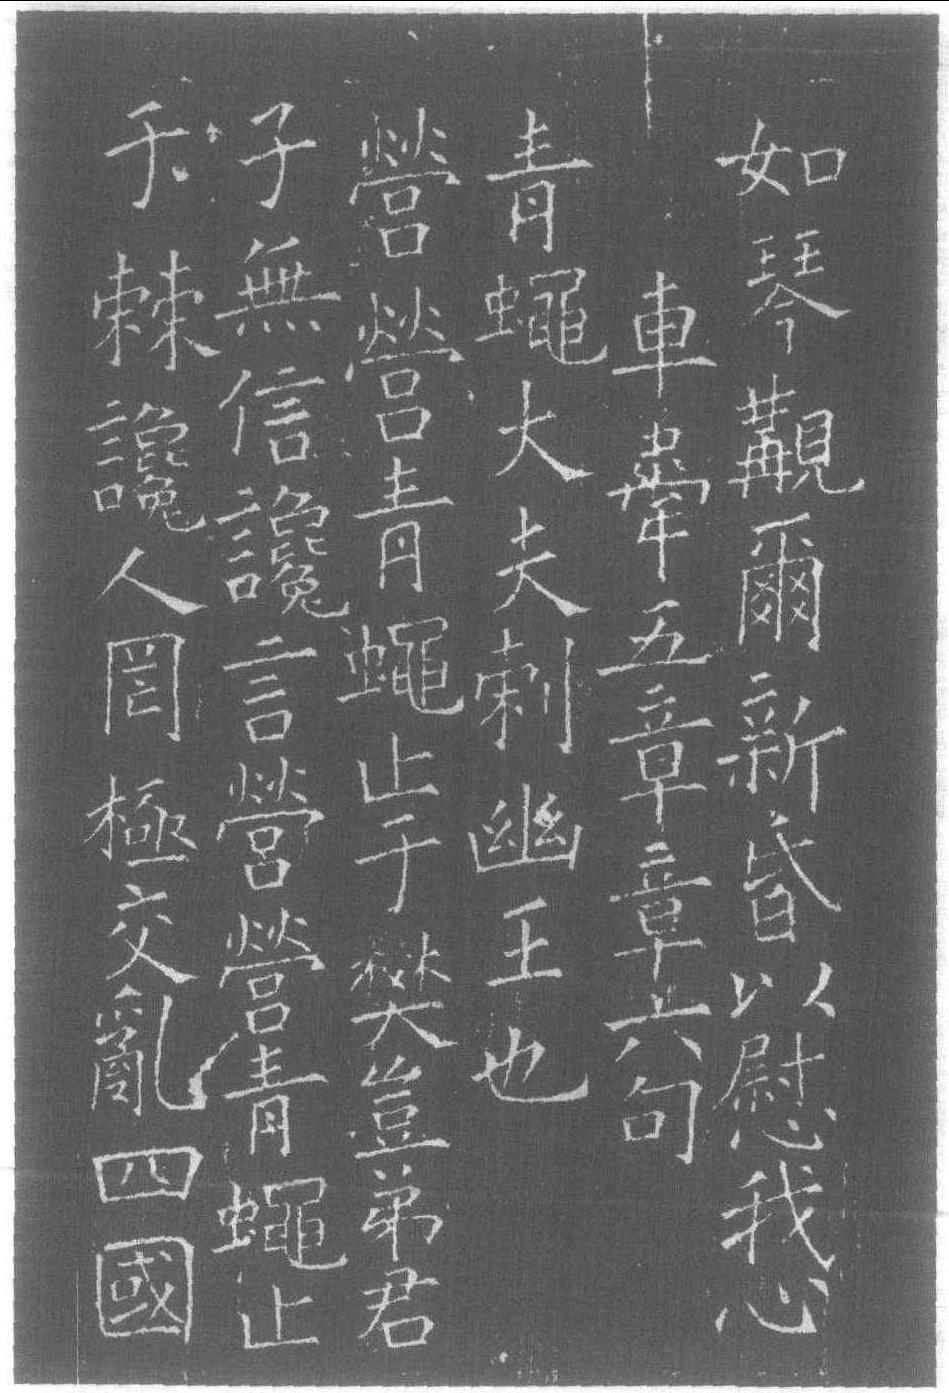 如琴覯爾新昏以慰我心
車舝五章章六句
青蠅大夫刺幽王也
營營青蠅止于樊豈弟君
子無信讒言營營青蠅止
于棘讒人罔極交亂四國